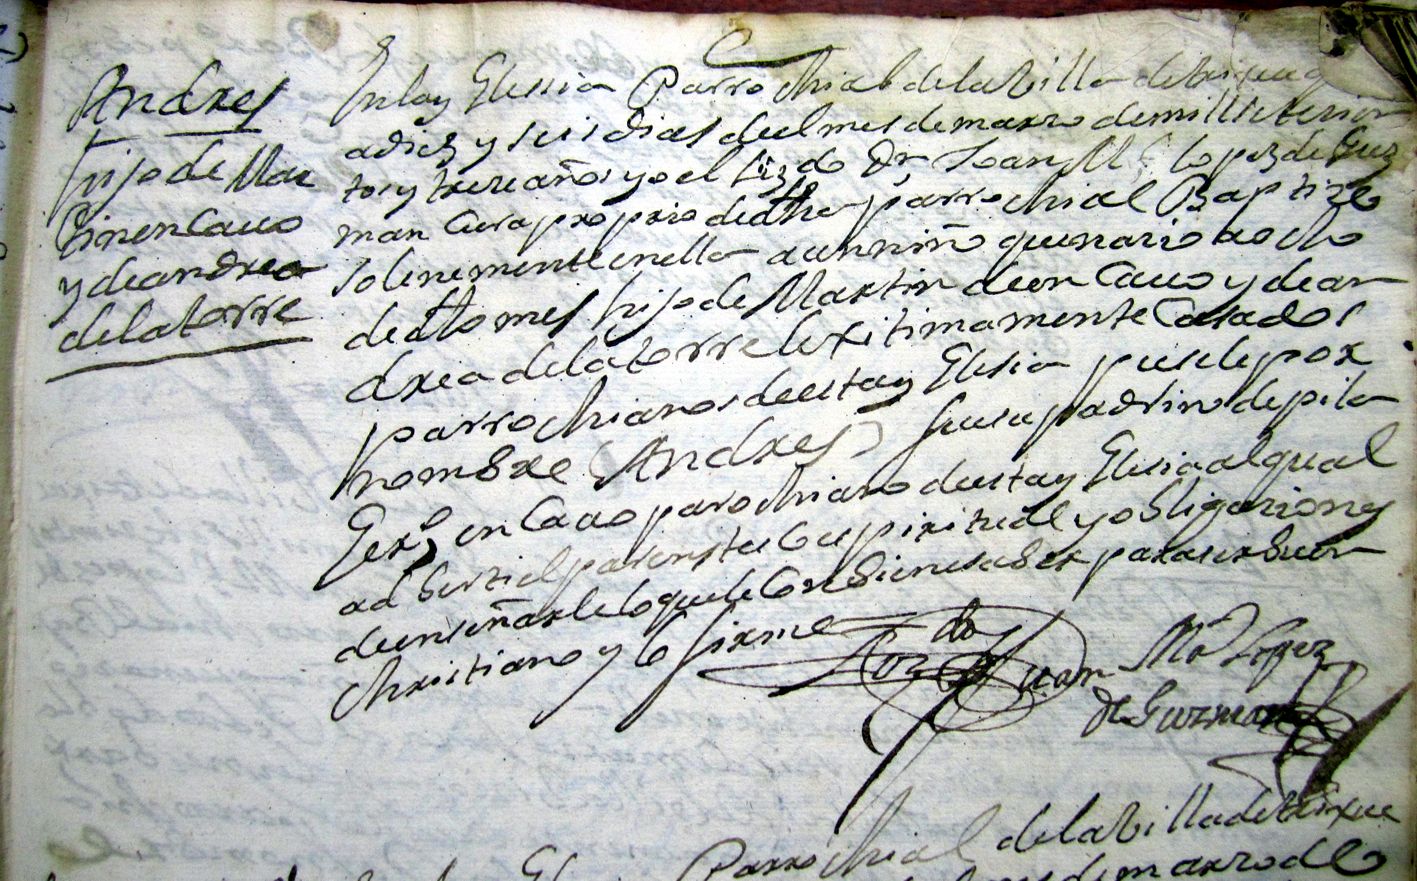 Andres
hijo de Mar
tin en Cavo
y de andrea
de la torre
En lay Glesia Parrochial de la Villa de
a diez y seis dias del mes de marzo de mill setecien
tos y trece años yo el Lizdo Dn Joan Ml Lopez de Guz
man Cura proprio de dha parrochial Baptize
solenemente en ella a un niño que nazio a ocho
de dho mes hijo de Martin de en Cavo y de an
drea de la torre lexitimamente Casados
parrochianos de esta y Glesia pusele por
nombre Andres fue su padrino de pila
en Cavo parochiano de esta y Glesia al qual
adberti el parentesco espiritual y obligazion
de enseñarle lo que le Conbiene saber para ser buen
Christiano y lo firme
Juan Ml Lopez
de Guzman
Parrochial de la Villa de
de marzo de